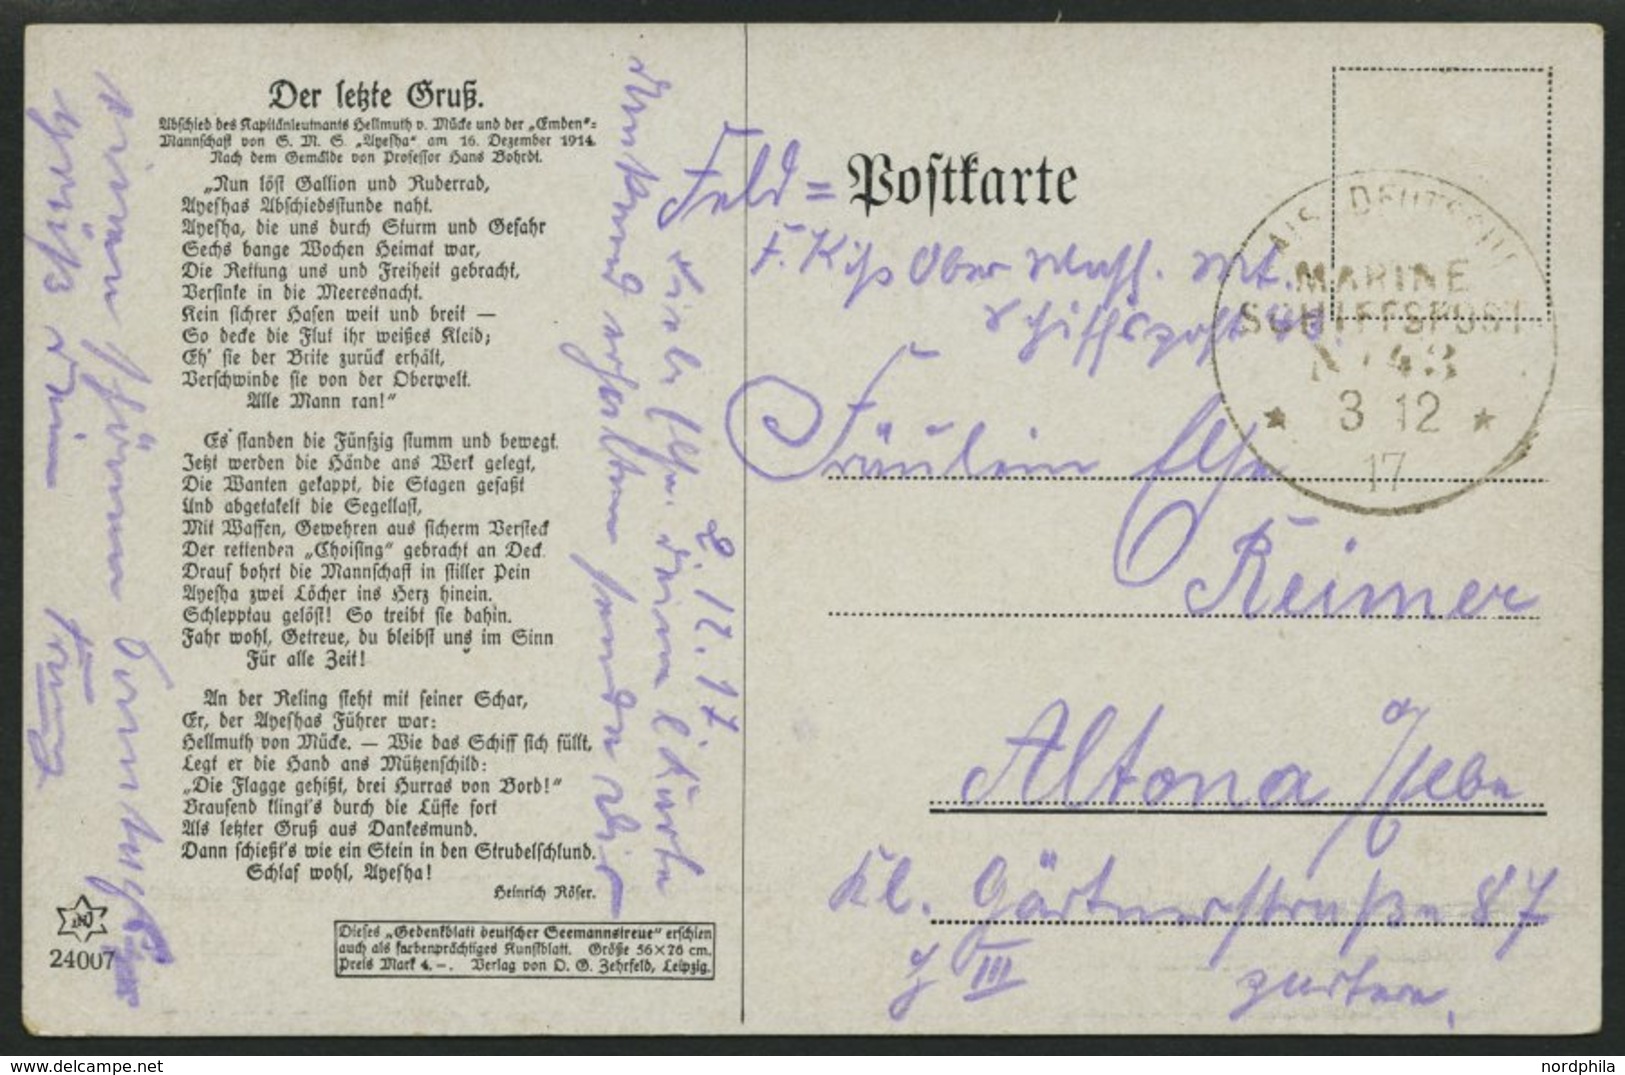 Der letzte Gruß.
Abschied des Kapitänleutnants Hellmuth v. Mücke und der „Emden"=
Mannschaft von S. M. S. „Ayesha" am 16. Dezember 1914.
Nach dem Gemälde von Professor Hans Bohrdt.
„Nun löst Gallion und Ruderrad,
Ayeshas Abschiedsstunde naht.
Ayesha, die uns durch Sturm und Gefahr
Sechs bange Wochen Heimat war,
Die Rettung uns und Freiheit gebracht,
Versinke in die Meeresnacht.
Kein sichrer Hafen weit und breit —
So decke die Flut ihr weißes Kleid;
Eh' sie der Brite zurück erhält,
Verschwinde sie von der Oberwelt.
Alle Mann ran!"
Es standen die Fünfzig stumm und bewegt.
Jetzt werden die Hände ans Werk gelegt,
Die Wanten gekappt, die Stagen gefaßt
Und abgetakelt die Segellast,
Mit Waffen, Gewehren aus sicherm Versteck
Der rettenden „Choising" gebracht an Deck.
Drauf bohrt die Mannschaft in stiller Pein
Ayesha zwei Löcher ins Herz hinein.
Schlepptau gelöst! So treibt sie dahin.
Fahr wohl, Getreue, du bleibst uns im Sinn
Für alle Zeit!
An der Reling steht mit seiner Schar,
Er, der Ayeshas Führer war:
Hellmuth von Mücke. — Wie das Schiff sich füllt,
Legt er die Hand ans Mützenschild:
„Die Flagge gehißt, drei Hurras von Bord!"
Brausend klingt's durch die Lüfte fort
Als letzter Gruß aus Dankesmund.
Dann schießt's wie ein Stein in den Strudelschlund.
Schlaf wohl, Ayesha!
Heinrich Röser.
Dieses „Gedenkblatt deutscher Seemannstreue" erschien
auch als farbenprächtiges Kunstblatt. Größe 56×76 cm.
Preis Mark 4.—. Verlag von O. G. Zehrfeld, Leipzig.
24007
2.12.17.
Liebe Else. deine l. Karte
dankend erhalten sende dir
Grüße dein
Franz
Feld = Postkarte
F. Kiß Ober Math. Mt.
Schiffspost
MARINE
SCHIFFSPOST
3 12
17
Fräulein Else
Reimer
Altona /Elbe
Kl. Gärtnerstraße 87
III